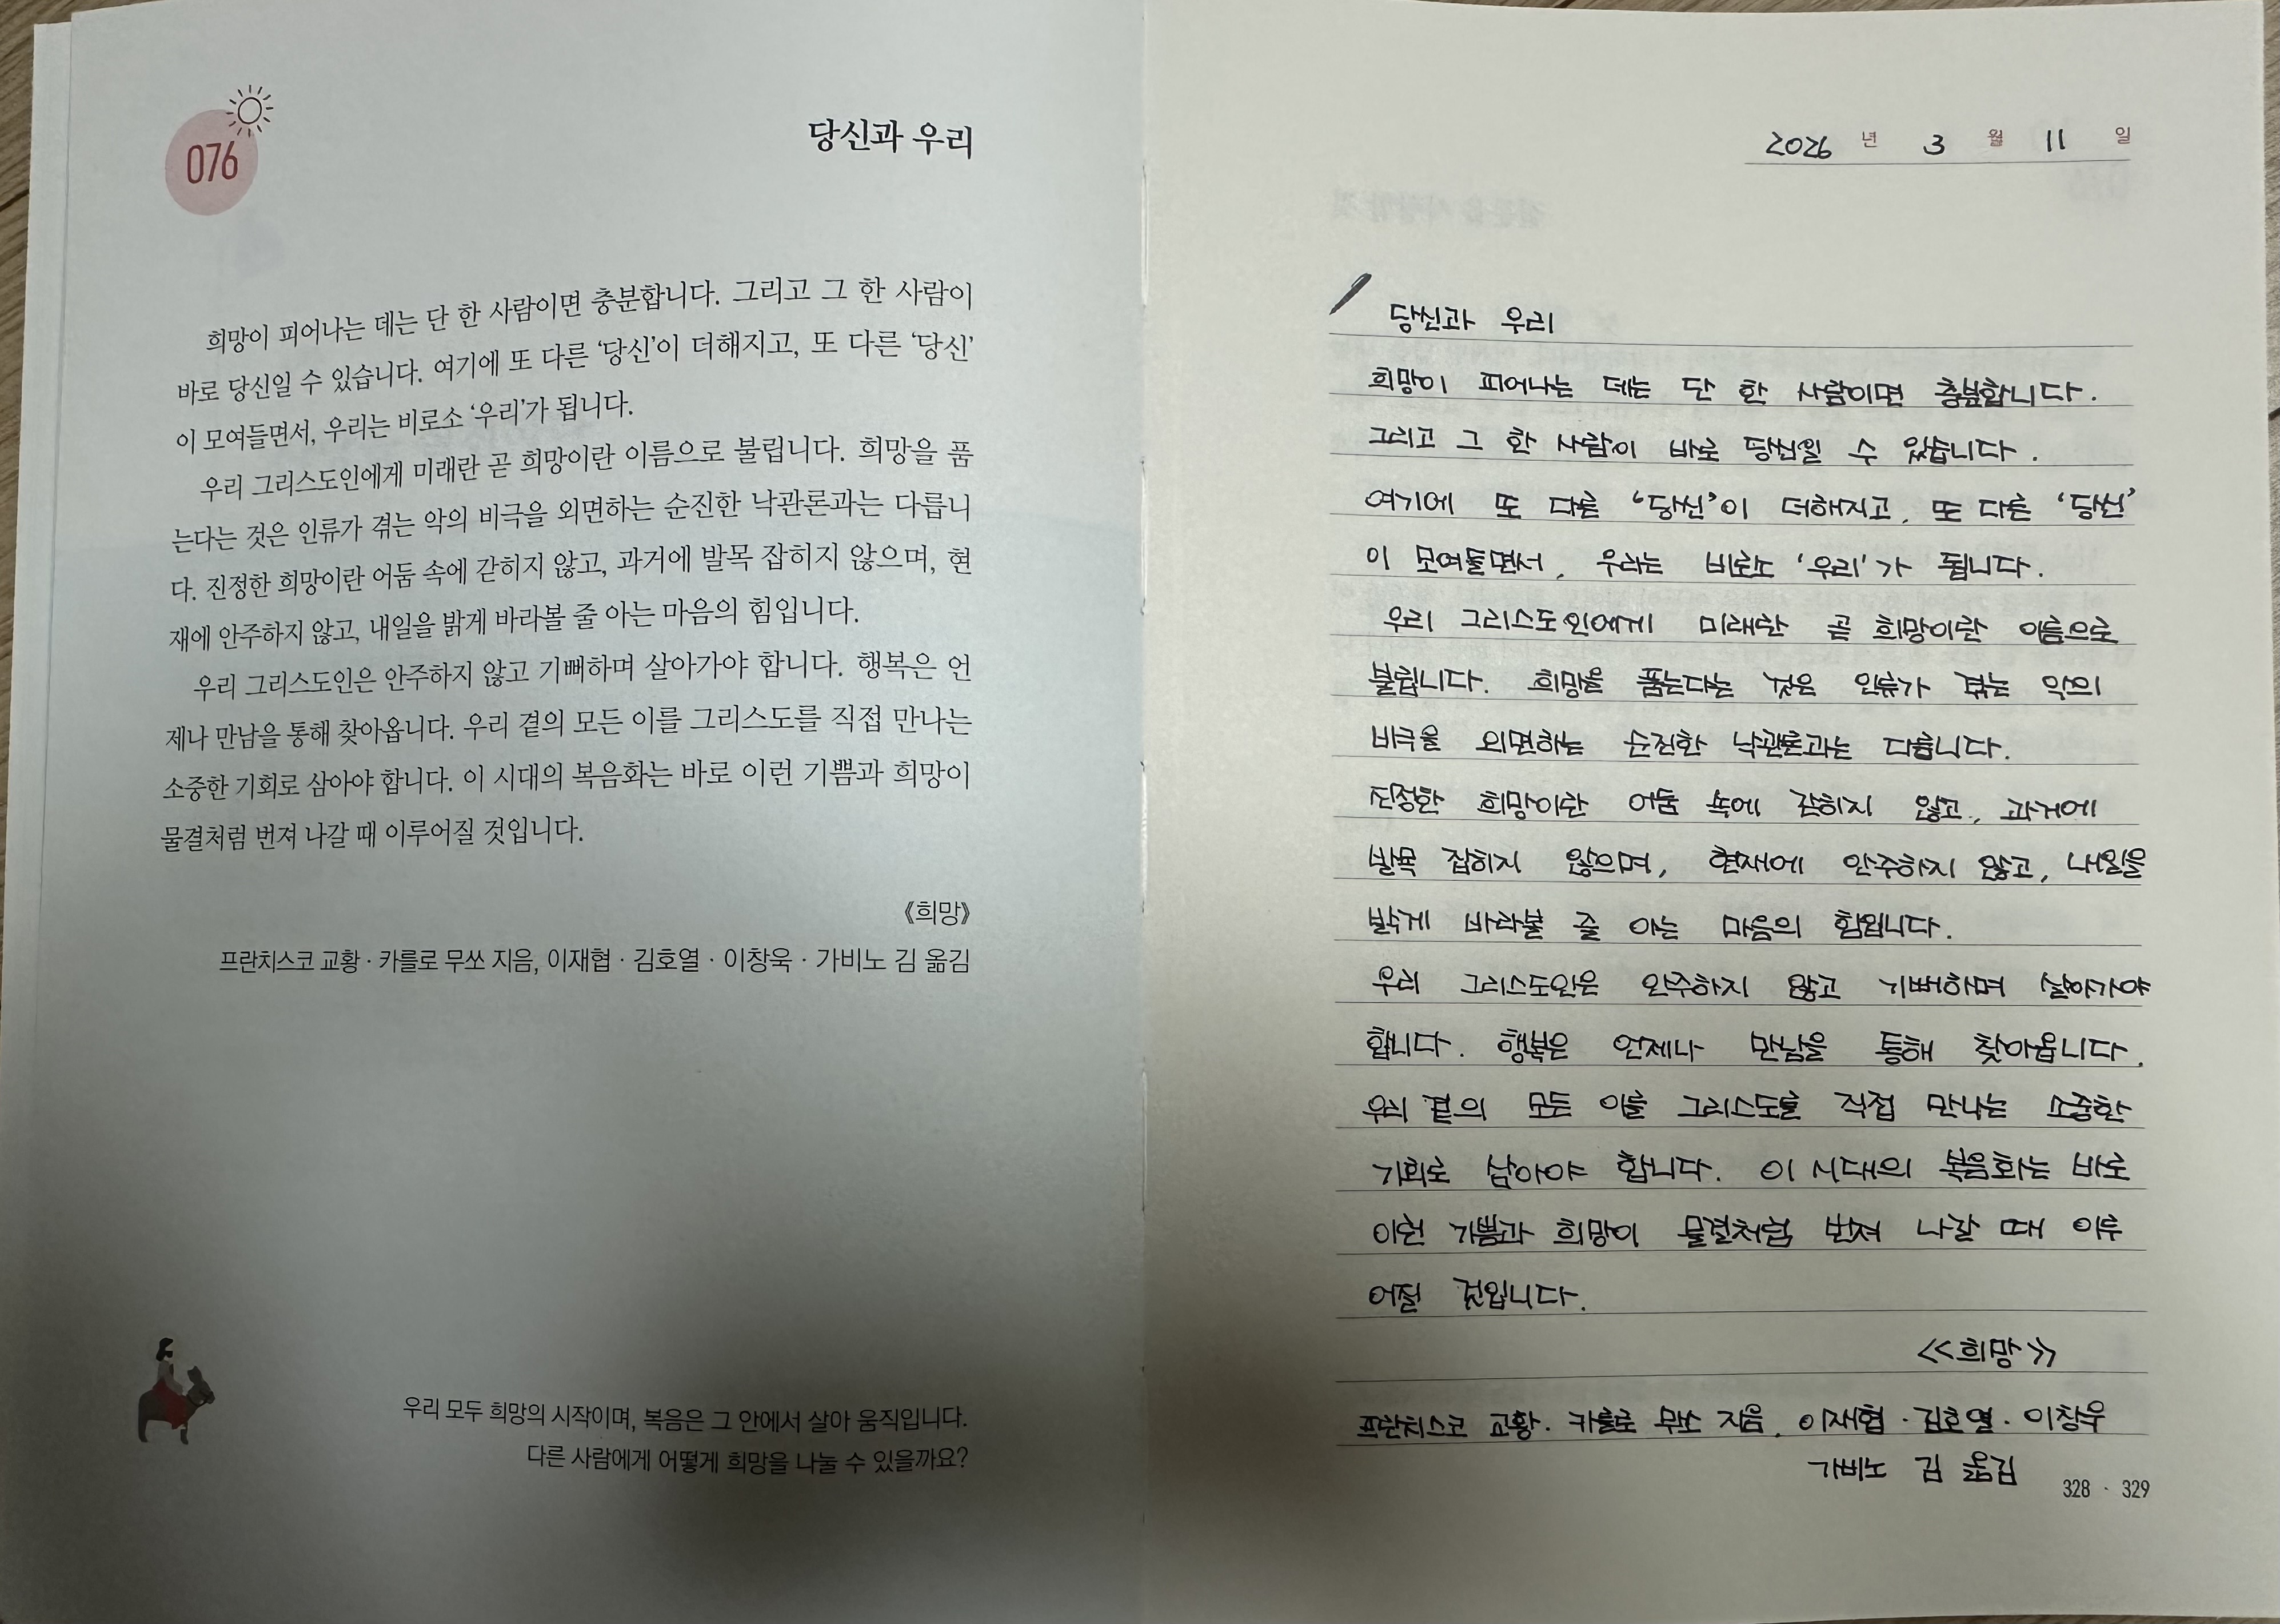 076
당신과 우리
희망이 피어나는 데는 단 한 사람이면 충분합니다. 그리고 그 한 사람이
바로 당신일 수 있습니다. 여기에 또 다른 ‘당신’이 더해지고, 또 다른 ‘당신’
이 모여들면서, 우리는 비로소 ‘우리’가 됩니다.
우리 그리스도인에게 미래란 곧 희망이란 이름으로 불립니다. 희망을 품
는다는 것은 인류가 겪는 악의 비극을 외면하는 순진한 낙관론과는 다릅니
다. 진정한 희망이란 어둠 속에 갇히지 않고, 과거에 발목 잡히지 않으며, 현
재에 안주하지 않고, 내일을 밝게 바라볼 줄 아는 마음의 힘입니다.
우리 그리스도인은 안주하지 않고 기뻐하며 살아가야 합니다. 행복은 언
제나 만남을 통해 찾아옵니다. 우리 곁의 모든 이를 그리스도를 직접 만나는
소중한 기회로 삼아야 합니다. 이 시대의 복음화는 바로 이런 기쁨과 희망이
물결처럼 번져 나갈 때 이루어질 것입니다.
《희망》
프란치스코 교황 · 카를로 무쏘 지음, 이재협 · 김호열 · 이창욱 · 가비노 김 옮김
우리 모두 희망의 시작이며, 복음은 그 안에서 살아 움직입니다.
다른 사람에게 어떻게 희망을 나눌 수 있을까요?
2026 년 3 월 11 일
당신과 우리
희망이 피어나는 데는 단 한 사람이면 충분합니다.
그리고 그 한 사람이 바로 당신일 수 있습니다.
여기에 또 다른 ‘당신’이 더해지고, 또 다른 ‘당신’
이 모여들면서, 우리는 비로소 ‘우리’가 됩니다.
우리 그리스도인에게 미래란 곧 희망이란 이름으로
불립니다. 희망을 품는다는 것은 인류가 겪는 악의
비극을 외면하는 순진한 낙관론과는 다릅니다.
진정한 희망이란 어둠 속에 갇히지 않고, 과거에
발목 잡히지 않으며, 현재에 안주하지 않고, 내일을
밝게 바라볼 줄 아는 마음의 힘입니다.
우리 그리스도인은 안주하지 않고 기뻐하며 살아가야
합니다. 행복은 언제나 만남을 통해 찾아옵니다.
우리 곁의 모든 이를 그리스도를 직접 만나는 소중한
기회로 삼아야 합니다. 이 시대의 복음화는 바로
이런 기쁨과 희망이 물결처럼 번져 나갈 때 이루
어질 것입니다.
<<희망>>
프란치스코 교황 · 카를로 무쏘 지음, 이재협 · 김호열 · 이창욱
가비노 김 옮김
328 · 329